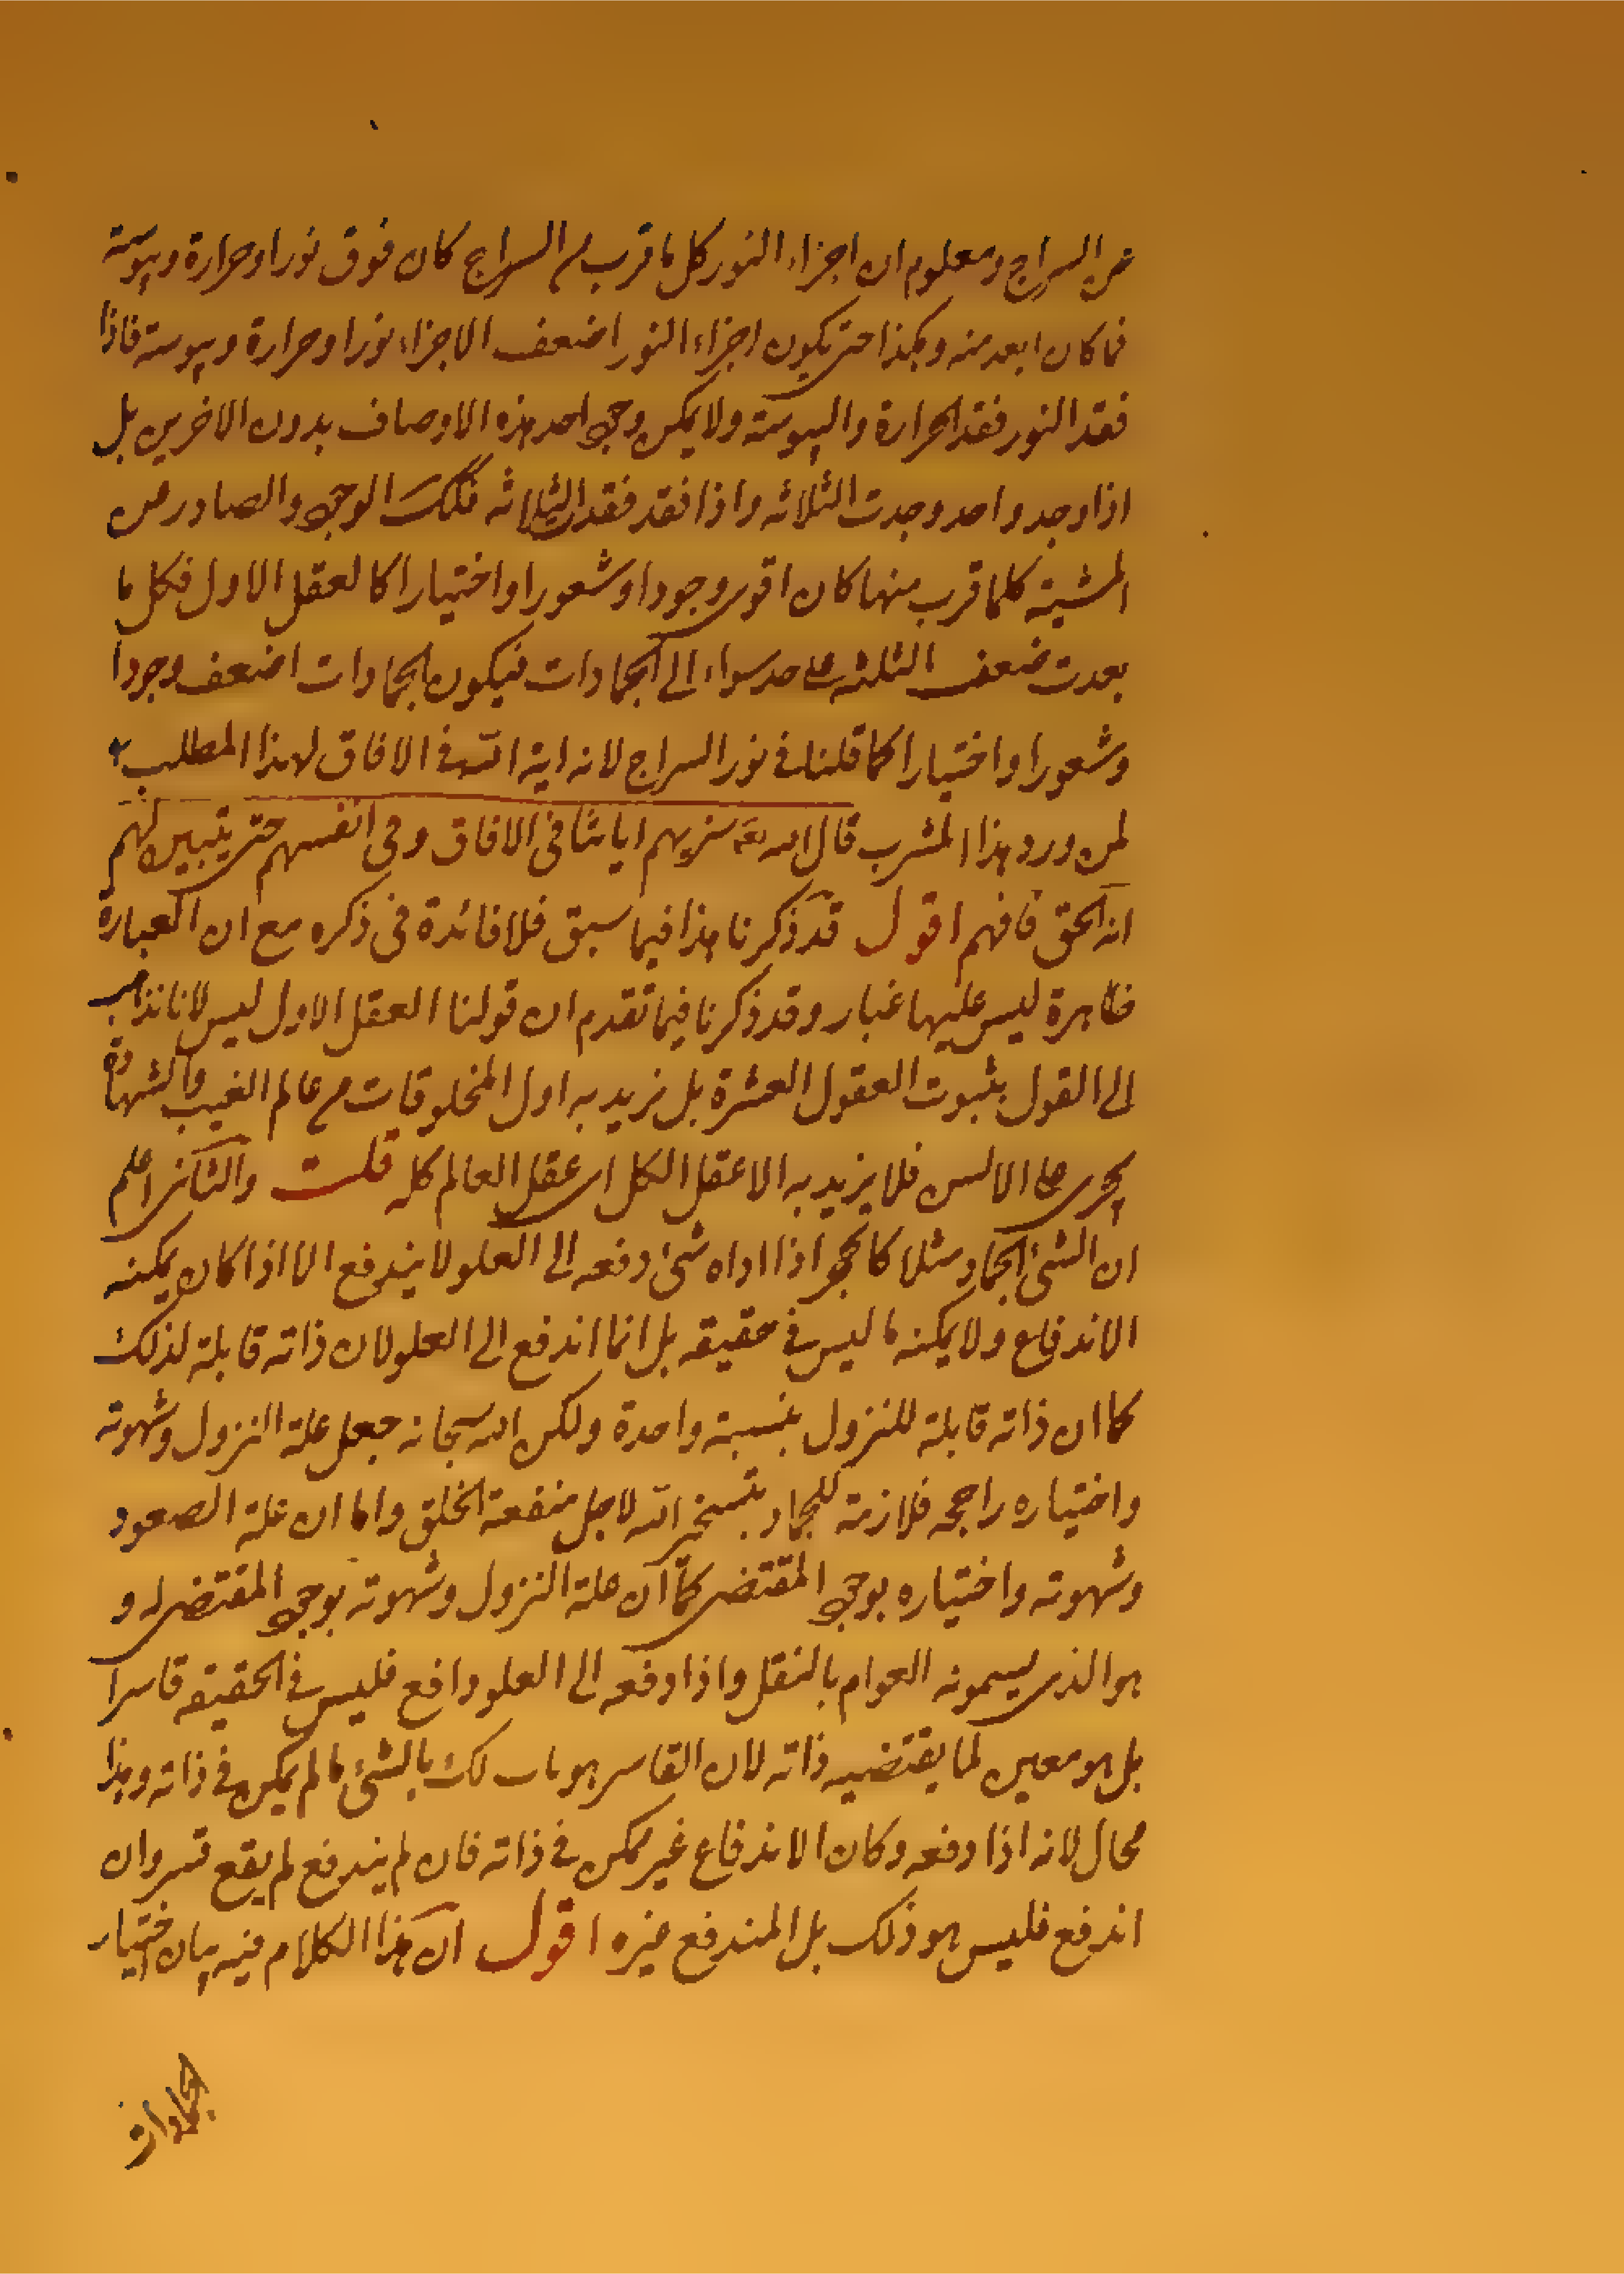 من السراج ومعلوم ان اجزاء النور كل ما قرب من السراج كان فوق نورا وحرارة ويبوسة
فما كان ابعد منه وهكذا حتى يكون اجزاء النور اضعف الاجزاء نورا وحرارة ويبوسة فاذا
فقد النور فقد الحرارة واليبوسة ولا يمكن وجود احد هذه الاوصاف بدون الاخرين بل
اذا وجد واحد وجدت الثلاثه واذا فقد فقد الثلاثه فكذلك الوجود الصادر من
المشية كلما قرب منها كان اقوى وجودا وشعورا واختيارا كالعقل الاول فكل ما
بعدت ضعف الثلثه على حد سواء الى الجمادات فيكون الجمادات اضعف وجودا
وشعورا واختيارا كما قلنا في نور السراج لانه اية الله في الافاق لهذا المطلب
لمن ورد هذا المشرب قال الله تعه سنريهم اياتنا في الافاق وفي انفسهم حتى يتبين لهم
انه الحق فافهم اقول قد ذكرنا هذا فيما سبق فلا فائدة في ذكره مع ان العبارة
ظاهرة ليس عليها غبار وقد ذكرنا فيما تقدم ان قولنا العقل الاول ليس لانا نذهب
الى القول بثبوت العقول العشرة بل نريد به اول المخلوقات من عالم الغيب والشهادة
يجرى على الالسن فلا يريد به الا عقل الكل اى عقل العالم كله قلت والثانى اعلم
ان الشئ الجماد مثلا كالحجر اذا اداه شئ دفعه الى العلو لا يندفع الا اذا كان يمكنه
الاندفاع ولا يمكنه ما ليس في حقيقه بل انما اندفع الى العلو لان ذاته قابلة لذلك
كما ان ذاته قابلة للنزول بنسبة واحدة ولكن الله سبحانه جعل علة النزول وشهوته
واختياره راجحه فلازمة للجماد بتسخير الله لاجل منفعة الخلق واما ان علة الصعود
وشهوته واختياره بوجود المقتضى كما ان علة النزول وشهوته بوجود المقتضى له و
هو الذى يسمونه العوام بالثقل واذا دفعه الى العلو دافع فليس في الحقيقه قاسرا
بل هو معين لما يقتضيه ذاته لان القاسر هو ما سلك بالشئ ما لم يكن في ذاته وهذا
محال لانه اذا دفعه وكان الاندفاع غير ممكن في ذاته فان لم يندفع لم يقع قسر وان
اندفع فليس هو ذلك بل المندفع غيره اقول ان هذا الكلام فيه بيان اختيار
الجمادات